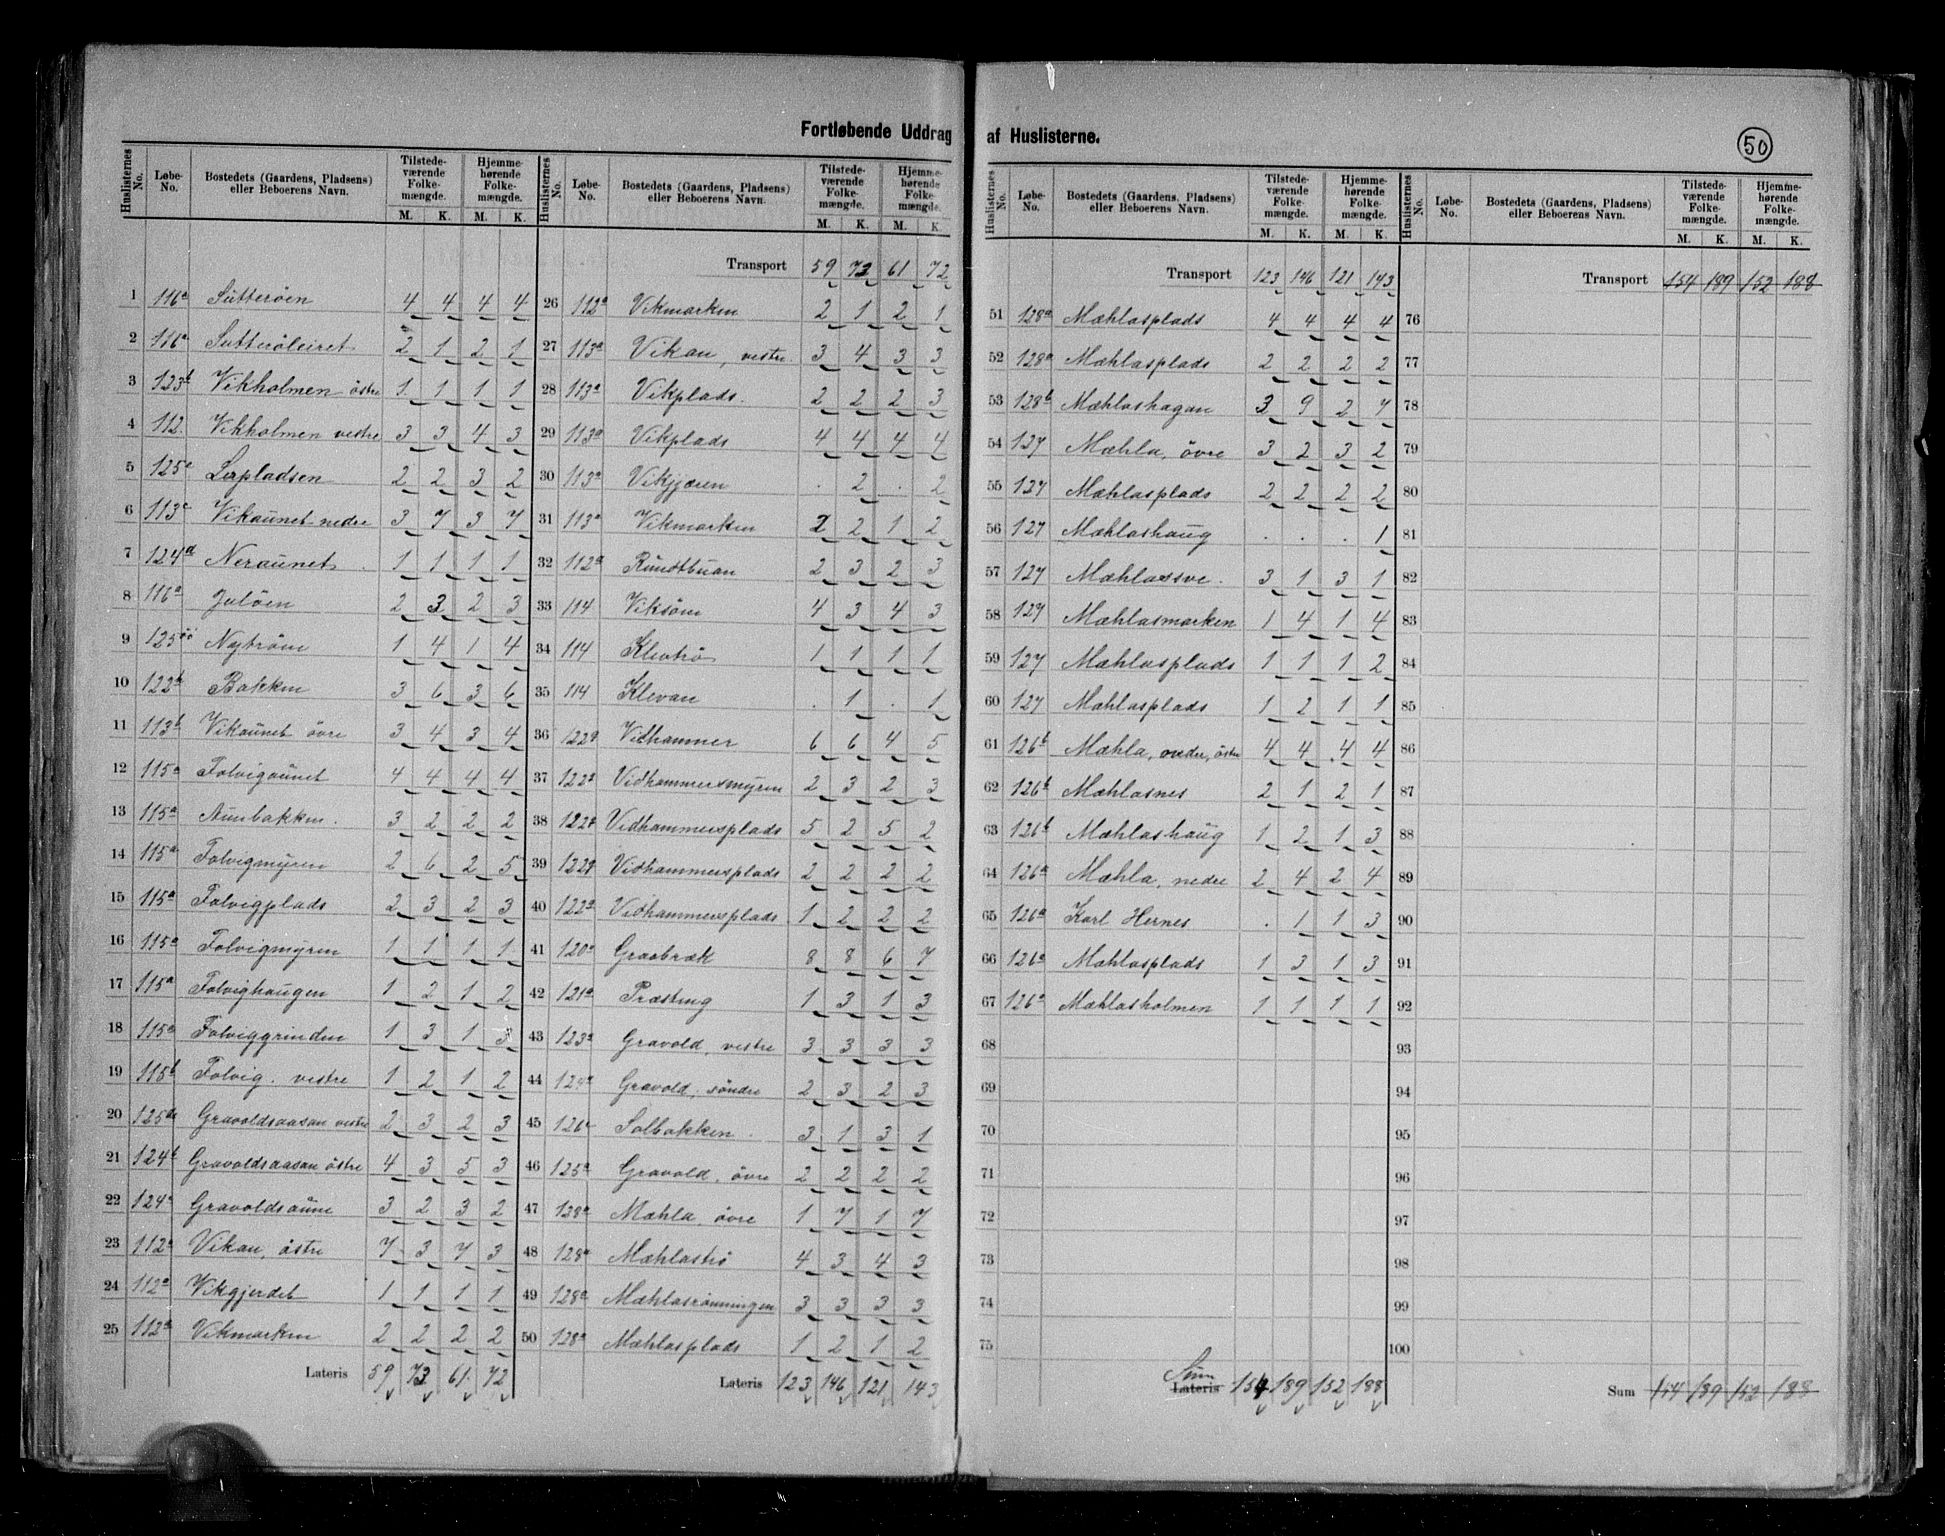 Fortløbende Uddrag af Huslisterne.
50
Huslisternes No. Løbe-No. Bostedets (Gaardens, Pladsens) eller Beboerens Navn. Tilstede-værende Folke-mængde. M. K. Hjemme-hørende Folke-mængde. M. K.
1 116a Sutterøen 4 4 4 4
2 116a Sutteröleiret 2 1 2 1
3 123b Vikholmen östre 1 1 1 1
4 112 Vikholmen vestre 3 3 4 3
5 125c Lerpladsen 2 2 3 2
6 113c Vikaunet nedre 3 7 3 7
7 124d Neraunet 1 1 1 1
8 116a Juløen 2 3 2 3
9 125 Nytrøen 1 4 1 4
10 122b Bakken 3 6 3 6
11 113b Vikaunet övre 3 4 3 4
12 115a Folvigaunet 4 4 4 4
13 115a Aunbakken. 3 2 2 2
14 115a Folvigmyren 2 6 2 5
15 115a Folvigplads 2 3 2 3
16 115a Folvigmyren 1 1 1 1
17 115a Folvighaugen 1 2 1 2
18 115a Folviggrinden 1 3 1 3
19 115b Folvig. vestre 1 2 1 2
20 125 Gravoldsaasan vestre 2 3 2 3
21 124b Gravoldsaasan östre 4 3 5 3
22 124c Gravoldsaune 3 2 3 2
23 112a Vikan, östre 7 3 7 3
24 112a Vikgjerdet 1 1 1 1
25 112a Vikmarken 2 2 2 2
Lateris 59 73 61 72
Huslisternes No. Løbe-No. Bostedets (Gaardens, Pladsens) eller Beboerens Navn. Tilstede-værende Folke-mængde. M. K. Hjemme-hørende Folke-mængde. M. K.
Transport 59 73 61 72
26 112a Vikmarken 2 1 2 1
27 113a Vikan, vestre. 3 4 3 3
28 113a Vikplads. 2 2 2 3
29 113a Vikplads 4 4 4 4
30 113a Vikjæren . 2 . 2
31 113a Vikmarken 2 2 1 2
32 112a Rundtbuan 2 3 2 3
33 114 Viksöm 4 3 4 3
34 114 Klevtrö 1 1 1 1
35 114 Klevan . 1 . 1
36 122a Vidhammer 6 6 4 5
37 122a Vidhammersmyren 2 3 2 3
38 122a Vidhammersplads 5 2 5 2
39 122a Vidhammersplads 2 2 2 2
40 122a Vidhammersplads 1 2 2 2
41 120a Graabræk 8 8 6 7
42 121a Præsteng 1 3 1 3
43 123a Gravold, vestre 3 3 3 3
44 124a Gravold, söndre 2 3 2 3
45 126c Solbakken. 3 1 3 1
46 125a Gravold, övre 2 2 2 2
47 128a Mæhla, övre 1 7 1 7
48 128a Mæhlaströ 4 3 4 3
49 128a Mæhlasrönningen 3 3 3 3
50 128a Mæhlasplads 1 2 1 2
Lateris 123 146 121 143
Huslisternes No. Løbe-No. Bostedets (Gaardens, Pladsens) eller Beboerens Navn. Tilstede-værende Folke-mængde. M. K. Hjemme-hørende Folke-mængde. M. K.
Transport 123 146 121 143
51 128a Mæhlasplads 4 4 4 4
52 128a Mæhlasplads 2 2 2 2
53 128b Mæhlashagan 3 9 2 7
54 127 Mæhla, övre 3 2 3 2
55 127 Mæhlasplads 2 2 2 2
56 127 Mæhlashaug . . . 1
57 127 Mæhlassve. 3 1 3 1
58 127 Mæhlasmarken 1 4 1 4
59 127 Mæhlasplads 1 1 1 2
60 127 Mæhlasplads 1 2 1 1
61 126b Mæhla, nedre, östre 4 4 4 4
62 126b Mæhlasnes 2 1 2 1
63 126b Mæhlashaug 1 2 1 3
64 126a Mæhla, nedre 2 4 2 4
65 126a Karl Hernes . 1 1 3
66 126a Mæhlasplads 1 3 1 3
67 126a Mæhlasholmen 1 1 1 1
68
69
70
71
72
73
74
75
Sum
Lateris 154 189 152 188
Huslisternes No. Løbe-No. Bostedets (Gaardens, Pladsens) eller Beboerens Navn. Tilstede-værende Folke-mængde. M. K. Hjemme-hørende Folke-mængde. M. K.
Transport 154 189 152 188
76
77
78
79
80
81
82
83
84
85
86
87
88
89
90
91
92
93
94
95
96
97
98
99
100
Sum 154 189 152 188